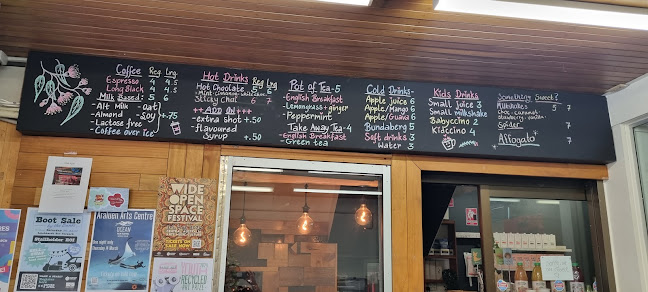 Coffee Reg Lrg.
Espresso 4 4.5
Long Black 4 4.5
Milk Based: 5 6
- Alt Milk - oat
- Almond Soy +.75
- Lactose free
- Coffee over Ice
Hot Drinks Reg Lrg
Hot Chocolate 5 6
Sticky Chai 6 7
++ ADD ON ++
- extra shot +.50
- flavoured
Syrup +.50
Pot of Tea-5
- English Breakfast
- Lemongrass + ginger
- Peppermint
Take Away Tea-4
- English Breakfast
- Green tea
Cold Drinks-
Apple Juice 6
Apple/Mango 6
Apple/Guava 6
Bundaberg 5
Soft drinks 3
Water 3
Kids Drinks
Small juice 3
Small milkshake
Babyccino 2
Kidccino 4
Something Sweet?
Milkshakes 5 7
choc - caramel -
strawberry - vanilla -
Spider 7
Affogato 7
WIDE
OPEN
SPACE
FESTIVAL
Boot Sale
Araluen Arts Centre
OCEAN
RECYCLED